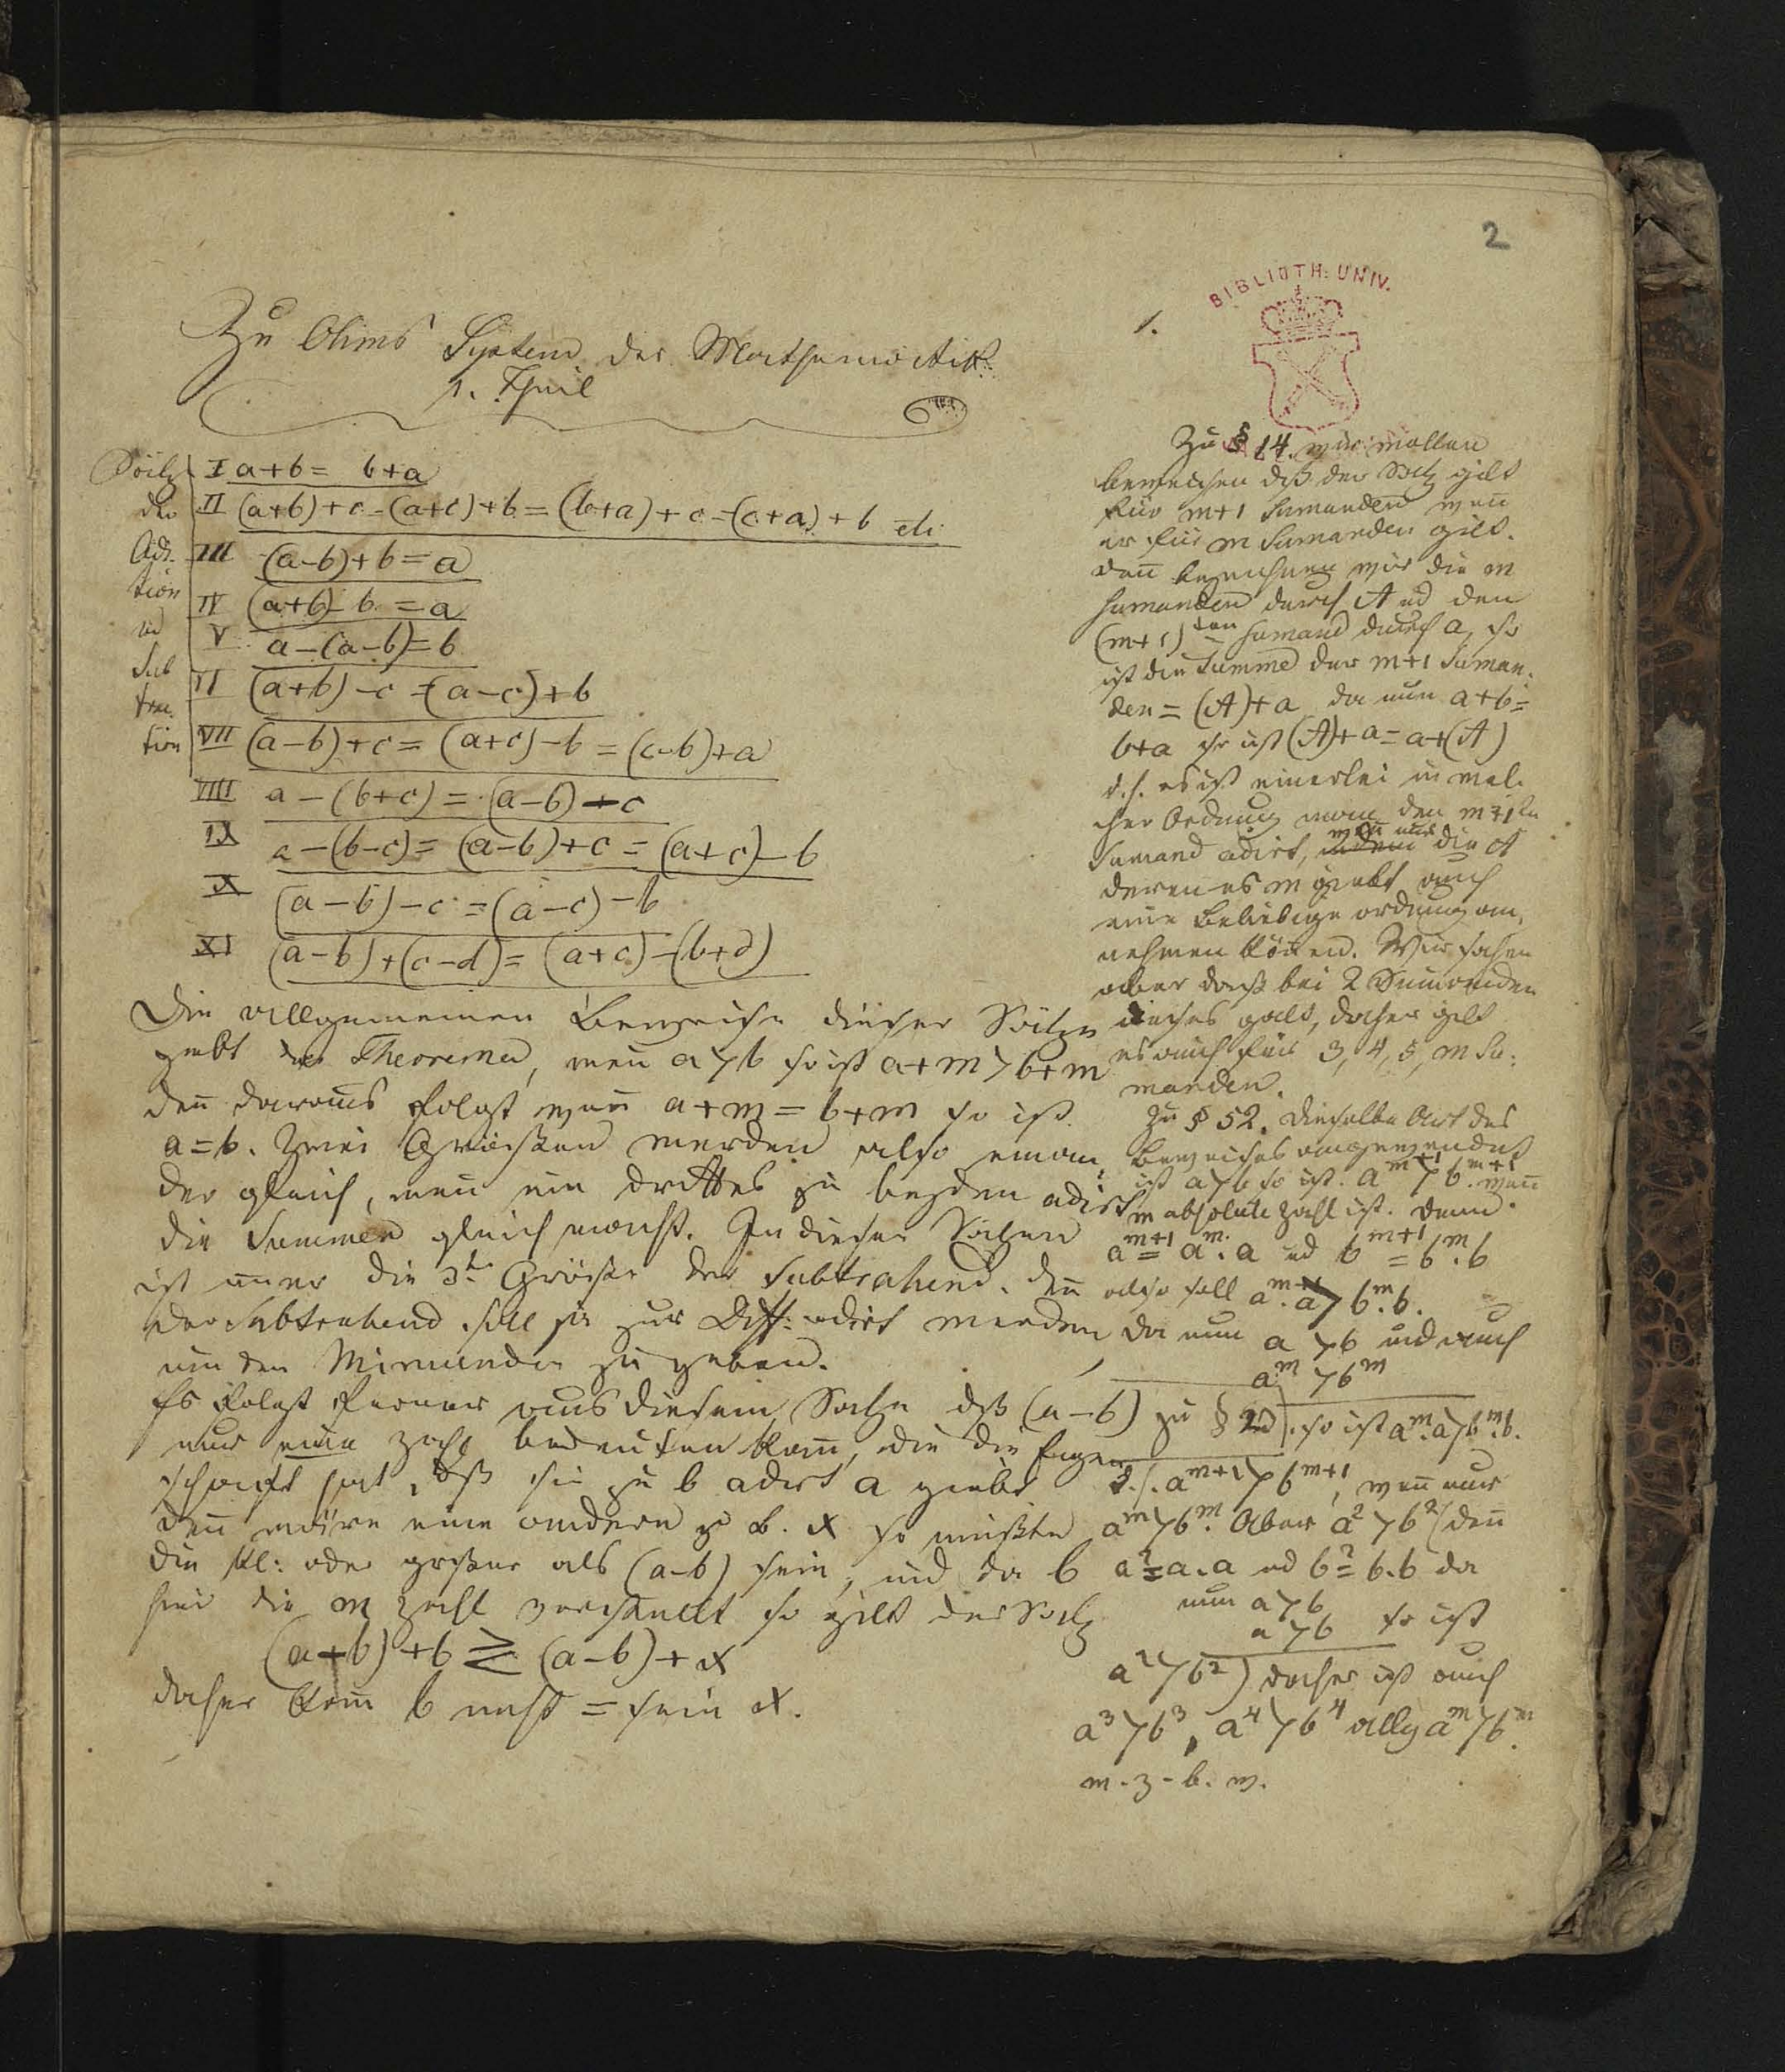 2
BIBLIOTH: UNIV.
Zu Ohms System der Mathematik
1. Theil
Sätze
der
Adi-
tion
ud
Sub
trac-
tion
I a+b = b+a
II (a+b)+c = (a+c)+b = (b+a)+c = (c+a)+b etc
III (a-b)+b = a
IV (a+b)-b = a
V a-(a-b) = b
VI (a+b)-c = (a-c)+b
VII (a-b)+c = (a+c)-b = (c-b)+a
VIII a-(b+c) = (a-b)-c
IX a-(b-c) = (a-b)+c = (a+c)-b
X (a-b)-c = (a-c)-b
XI (a-b)+(c-d) = (a+c)-(b+d)
Die allgemeinen Beweise dieser Sätze
giebt das Theorema, wen̄ a>b so ist a+m>b+m
den̄ daraus folgt wen̄ a+m=b+m so ist
a=b. Zwei Grössen werden also einan-
der gleich, wen̄ ein drittes zu beyden adirt
die Summen gleich macht. In diesen Sätzen
ist im̄er die 3te Grösse der Subtrahend. Den̄
der Subtrahend soll ja zur Diff: adirt werden
um den Minuenden zu geben.
Es folgt ferner aus diesem Satze dß (a-b)
nur eine Zahl bedeuten kan̄, die die Eigen-
schaft hat, dß sie zu b adirt a giebt
den̄ wäre eine andere z. B. x so müßte
die kl: oder größer als (a-b) sein, und da b
hier die m Zahl vorstellt so gilt der Satz
(a-b)+b ≷ (a-b)+x
daher kan̄ b nicht = sein x.
1.
Zu § 14. wir wollen
beweisen dß der Satz gilt
für m+1 Sumanden wen̄
er für m Sumanden gilt.
Den̄ bezeichnen wir die m
Sumanden durch A ud den
(m+1)ten Sumand durch a, so
ist die Summe der m+1 Suman-
den = (A)+a da nun a+b=
b+a so ist (A)+a = a+(A)
d. h. es ist einerlei in wel-
cher Ordnung man den m+1ten
Sumand adirt, wen̄ nur die A
deren es m giebt auch
eine beliebige ordnung an-
nehmen kön̄en. Wir sahen
aber daß bei 2 Sumanden
dieses galt, daher gilt
es auch für 3, 4, 5, m Su-
manden.
Zu § 52. Dieselbe Art des
Beweises angewendet
ist a>b so ist a^{m+1}>b^{m+1}. wen̄
m absolute Zahl ist. Denn
a^{m+1} = a^m. a ud b^{m+1} = b^m. b
also soll a^m. a > b^m. b.
da nun a>b und auch
a^m > b^m
zu § 20. so ist a^m. a>b^m. b.
d. h. a^{m+1}>b^{m+1}, wen̄ nur
a^m>b^m. Aber a²>b² (den̄
a² = a.a ud b² = b.b da
nun a>b
a>b so ist
a²>b²) daher ist auch
a³>b³, a⁴>b⁴ allg a^m>b^m.
w. z. b. w.